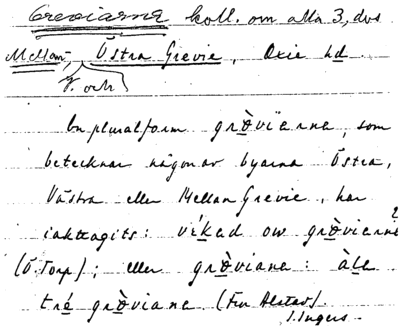 Greviarne koll. om alla 3, dvs
Mellan-, Östra Grevie, Oxie hd.
V. och
En pluralform gròviarne, som
betecknar någon av byarna Östra,
Västra eller Mellan Grevie, har
iakttagits: víkad ow gròvianne?
(Ö. Torp); eller gròviane: àle
tré gròviane (Fru Alstad).
I. Ingers.